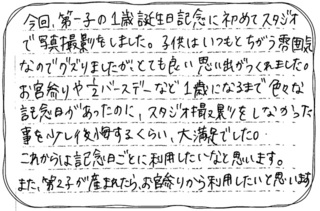 今回、第一子の1歳誕生日記念に初めてスタジオ
で写真撮影をしました。子供はいつもとちがう雰囲気
なのでグズりましたがとても良い思い出がつくれました。
お宮参りや1/2バースデーなど1歳になるまで色々な
記念日があったのに、スタジオ撮影をしなかった
事を少し後悔するくらい、大満足でした。
これからは記念日ごとに利用したいなと思います。
また、第2子が産まれたら、お宮参りから利用したいと思います